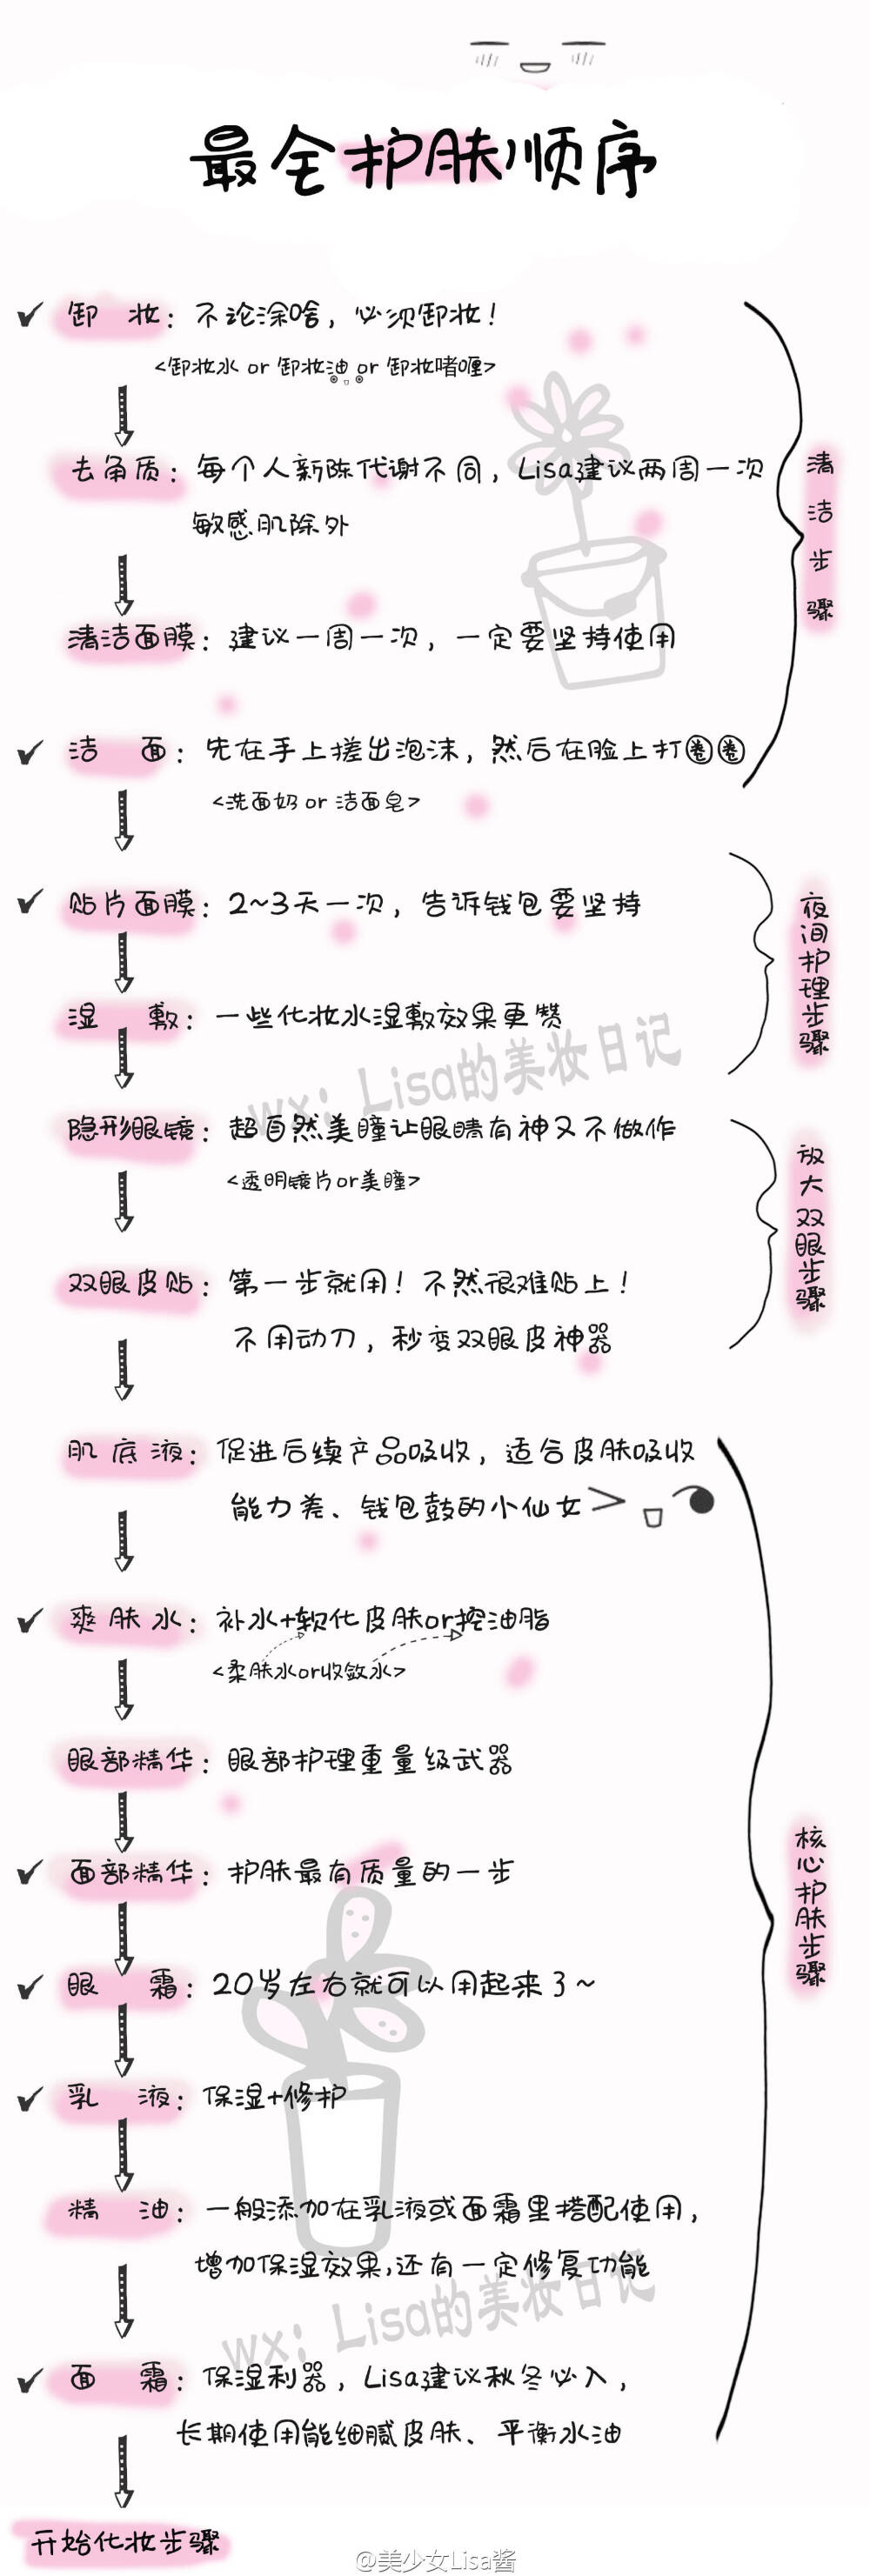 最全护肤顺序
卸 妆：不论涂啥，必须卸妆！
<卸妆水 or 卸妆油 or 卸妆啫喱>
去角质：每个人新陈代谢不同，Lisa建议两周一次
敏感肌除外
清洁面膜：建议一周一次，一定要坚持使用
洁 面：先在手上搓出泡沫，然后在脸上打圈圈
<洗面奶 or 洁面皂>
清洁步骤
贴片面膜：2~3天一次，告诉钱包要坚持
湿 敷：一些化妆水湿敷效果更赞
夜间护理步骤
wx：Lisa的美妆日记
隐形眼镜：超自然美瞳让眼睛有神又不做作
<透明镜片or美瞳>
双眼皮贴：第一步就用！不然很难贴上！
不用动刀，秒变双眼皮神器
放大双眼步骤
肌底液：促进后续产品吸收，适合皮肤吸收
能力差、钱包鼓的小仙女
爽肤水：补水+软化皮肤or控油脂
<柔肤水or收敛水>
眼部精华：眼部护理重量级武器
面部精华：护肤最有质量的一步
眼 霜：20岁左右就可以用起来了~
乳 液：保湿+修护
精 油：一般添加在乳液或面霜里搭配使用，
增加保湿效果，还有一定修复功能
wx：Lisa的美妆日记
面 霜：保湿利器，Lisa建议秋冬必入，
长期使用能细腻皮肤、平衡水油
核心护肤步骤
开始化妆步骤
@美少女Lisa酱